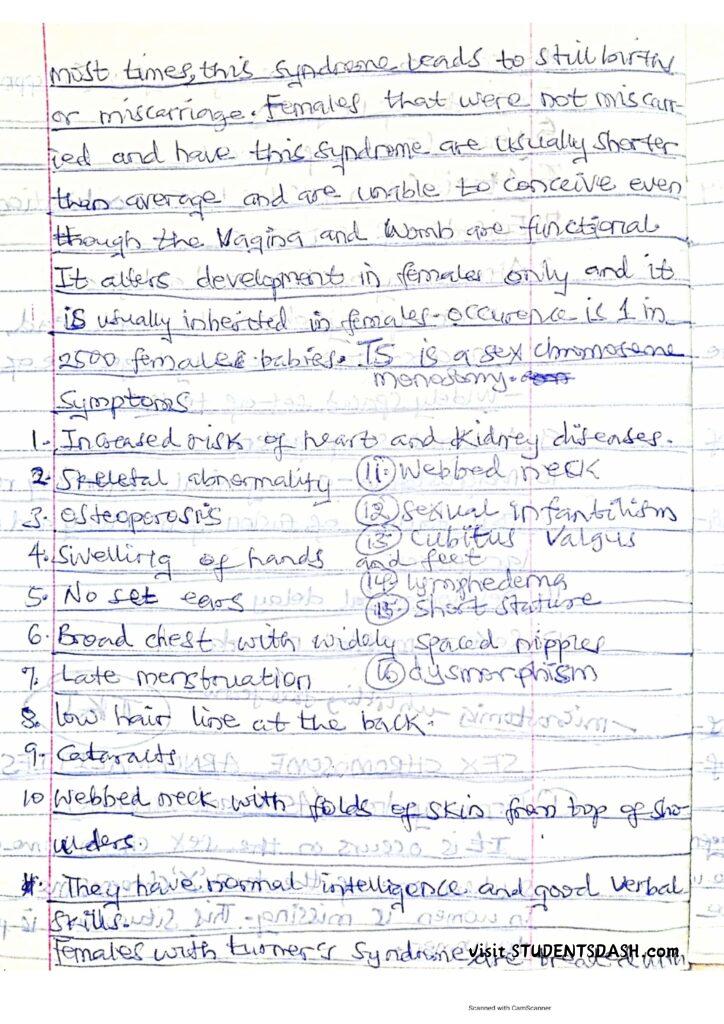 most times, this syndrome leads to stillbirth
or miscarriage. Females that were not miscarr-
ied and have this syndrome are usually shorter
than average and are unable to conceive even
though the vagina and womb are functional.
It alters development in females only and it
is usually inherited in females. occurence is 1 in
2500 females babies. TS is a sex chromosome
monosomy.
Symptoms
1. Increased risk of heart and kidney diseases.
2. Skeletal abnormality (11) Webbed neck
3. Osteoporosis (12) Sexual infantilism
(13) Cubitus Valgus
4. Swelling of hands and feet
(14) lymphedema
5. No set ears (15) Short stature
6. Broad chest with widely spaced nipples
7. Late menstruation (16) dysmorphism
8. low hair line at the back.
9. Cataracts
10 Webbed neck with folds of skin from top of sho-
ulders.
They have normal intelligence and good verbal
skills.
Females with turner's Syndrome are
visit STUDENTSDASH.com
Scanned with CamScanner